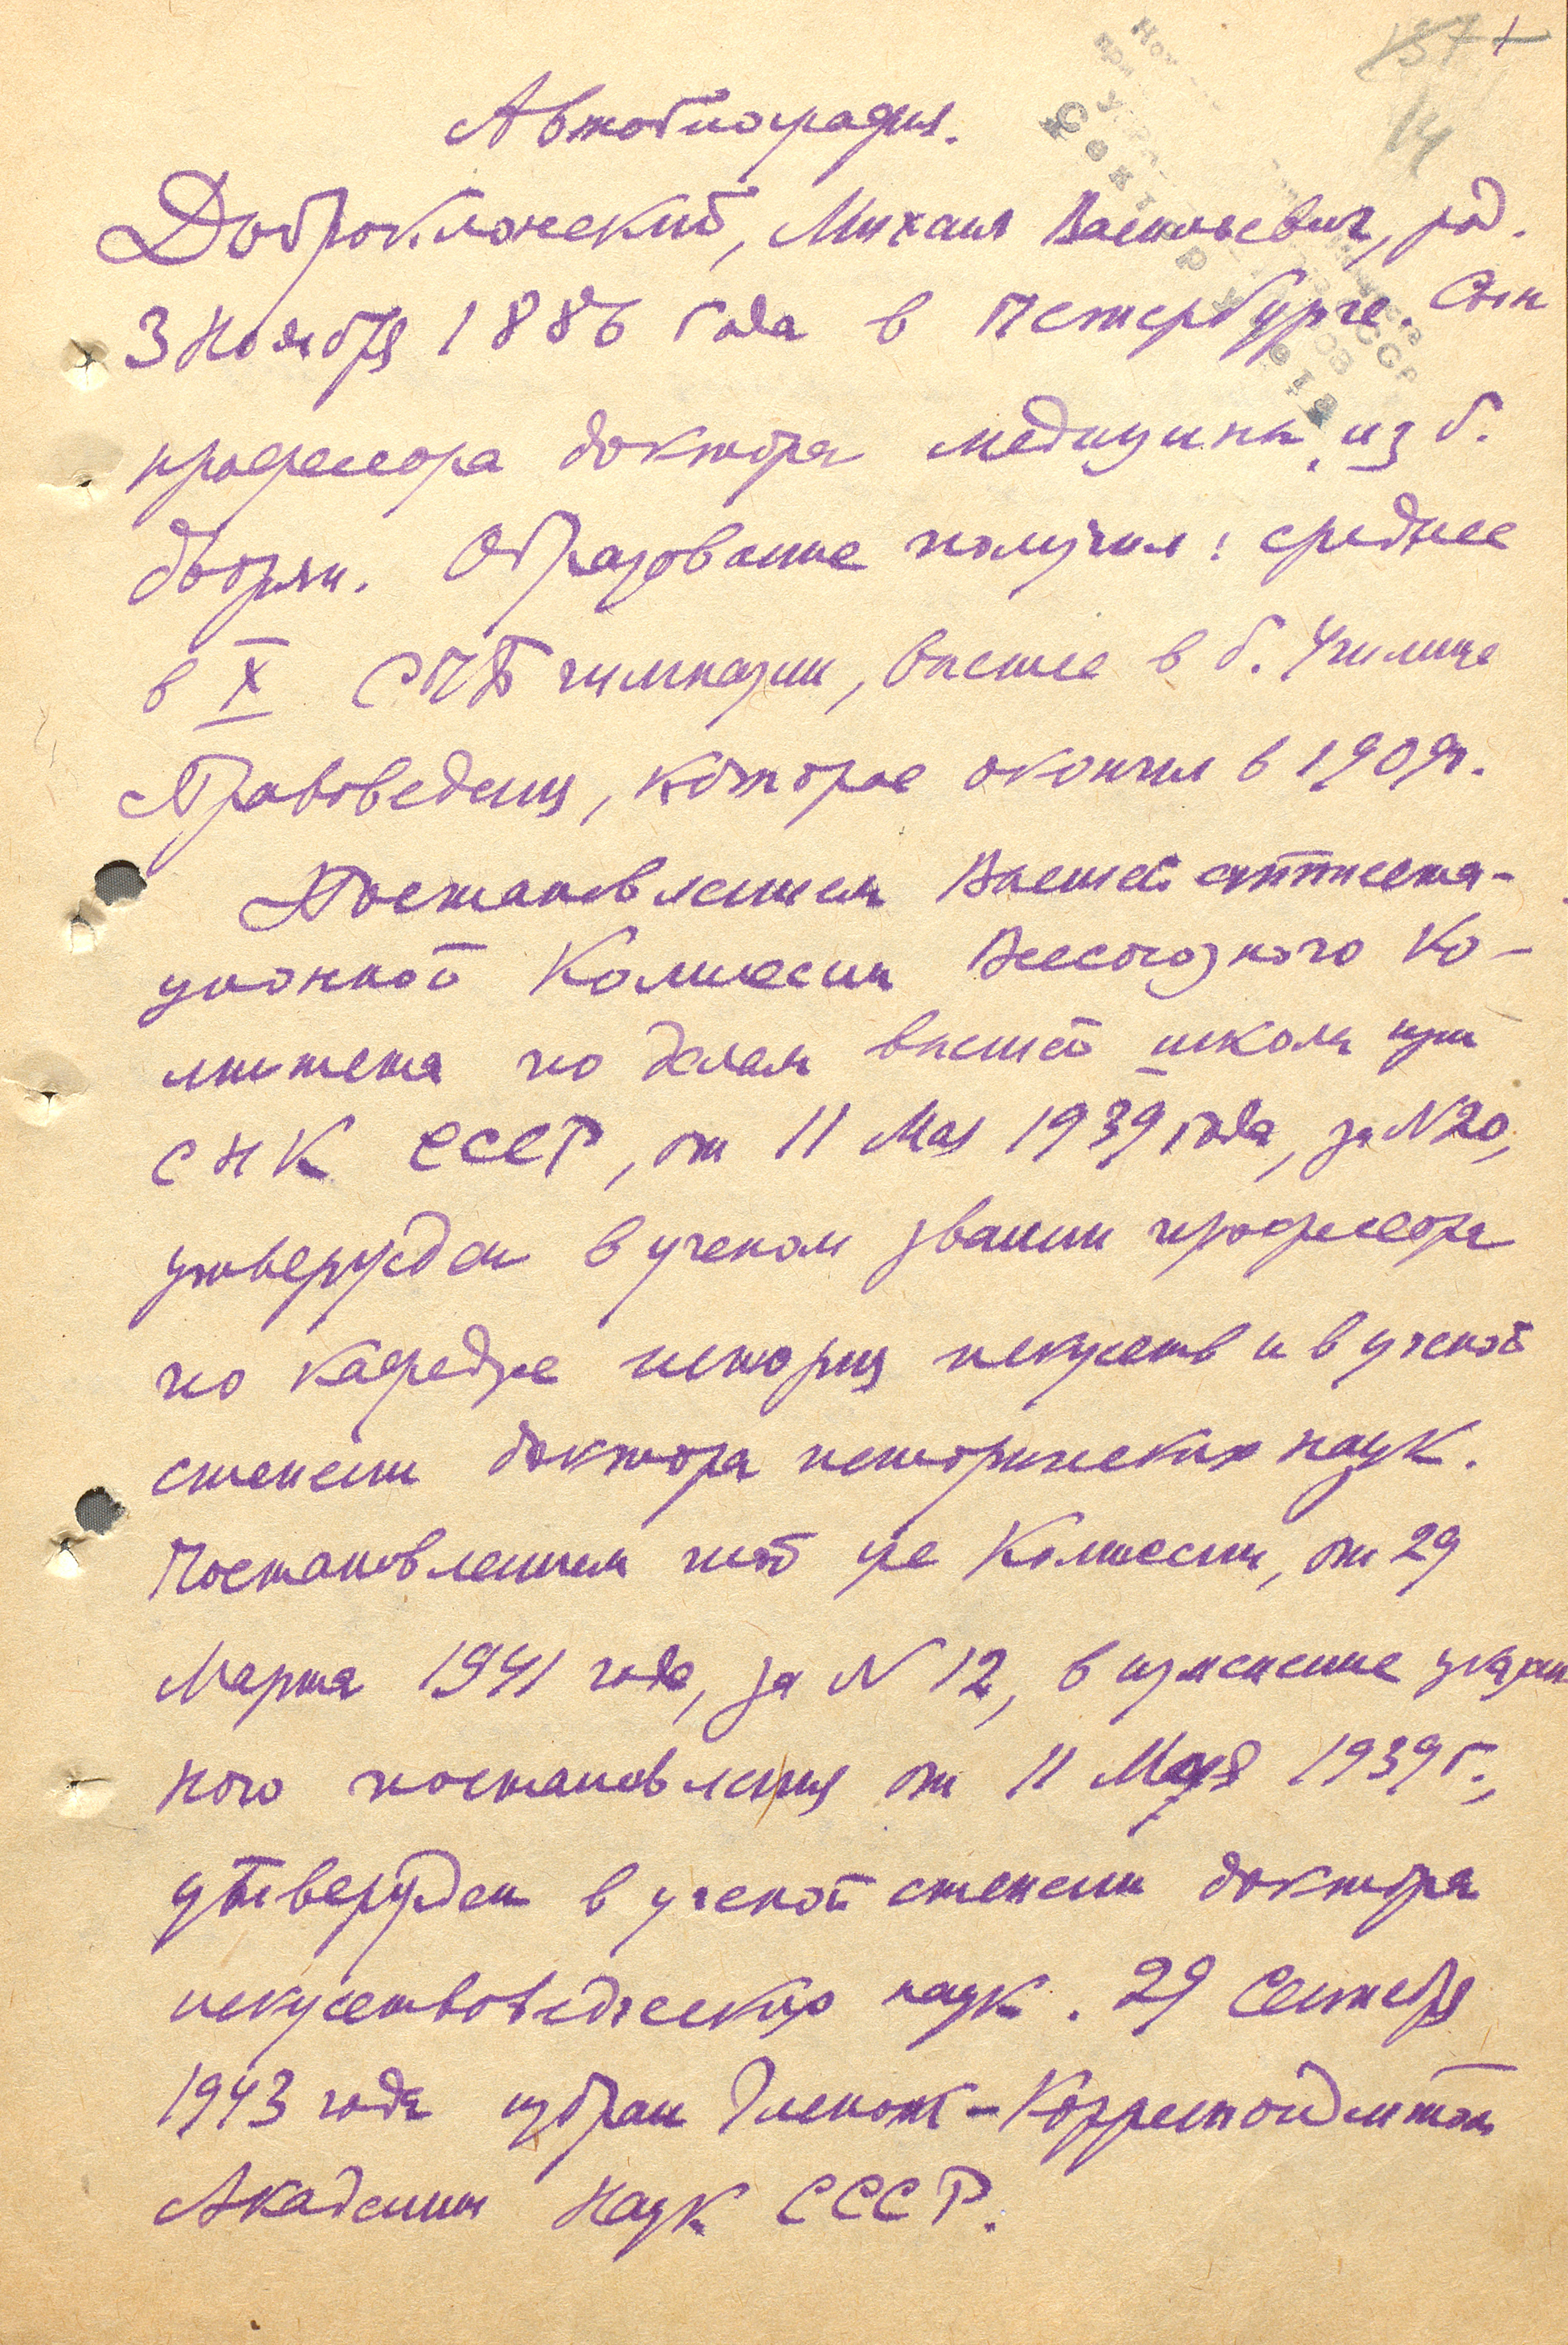 14
Автобиография.
Доброклонский, Михаил Васильевич, род.
3 Ноября 1886 года в Петербурге. Сын
профессора доктора медицины, из б.
дворян. Образование получил: среднее
в X СПБ гимназии, высшее в б. Училище
Правоведения, которое окончил в 1909 г.
Постановлением Высшей аттеста-
ционной Комиссии Всесоюзного Ко-
митета по делам высшей школы при
СНК СССР, от 11 Мая 1939 года, за N 20,
утвержден в ученом звании профессора
по кафедре история искусств и в ученой
степени доктора исторических наук.
Постановлением той же Комиссии, от 29
Марта 1941 года, за N 12, в изменение указан
ного постановления от 11 Мая 1939 г.,
утвержден в ученой степени доктора
искусствоведческих наук. 29 Сентября
1943 года избран Членом-Корреспондентом
Академии Наук СССР.